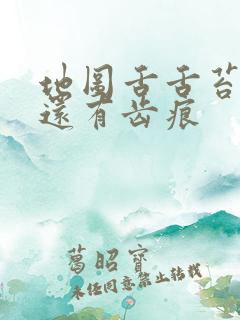 地图舌舌苔
还有齿痕
葛昭宝
未经同意禁止转载